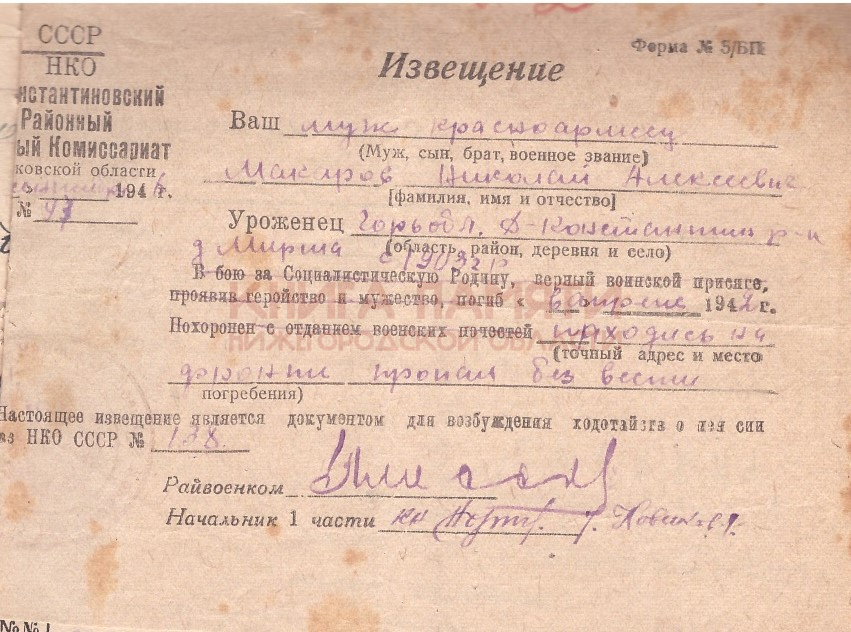 СССР
НКО
нстантиновский
Районный
ый Комиссариат
ковской области
194 г.
№ 97
Форма № 5/БП
Извещение
Ваш муж красноармеец
(Муж, сын, брат, военное звание)
Макаров Николай Алексеевич
[фамилия, имя и отчество]
Уроженец Горьобл. Д-Константин р-н
(область, район, деревня и село)
д Мирша с 1903г р
В бою за Социалистическую Родину, верный воинской присяге,
проявив геройство и мужество, погиб « в апреле 1942 г.
Похоронен с отданием военских почестей находясь на
(точный адрес и место
фронте пропал без вести
погребения)
Настоящее извещение является документом для возбуждения ходотайств о пен сии
аз НКО СССР № 138.
Райвоенком
Начальник 1 части
№№1
КНИГА ПАМЯТИ
НИЖЕГОРОДСКОЙ ОБЛАСТИ